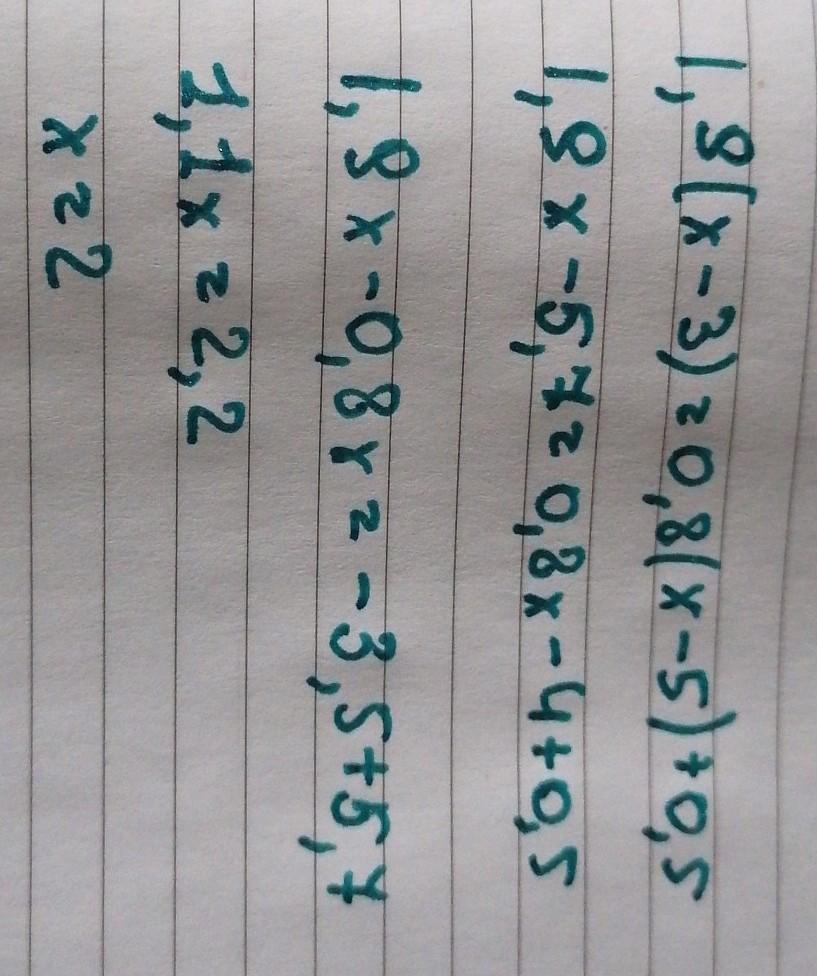 1,9(x-3)=0,8(x-5)+0,5
1,9x-5,7=0,8x-4+0,5
1,9x-0,8x=-3,5+5,7
1,1x=2,2
x=2